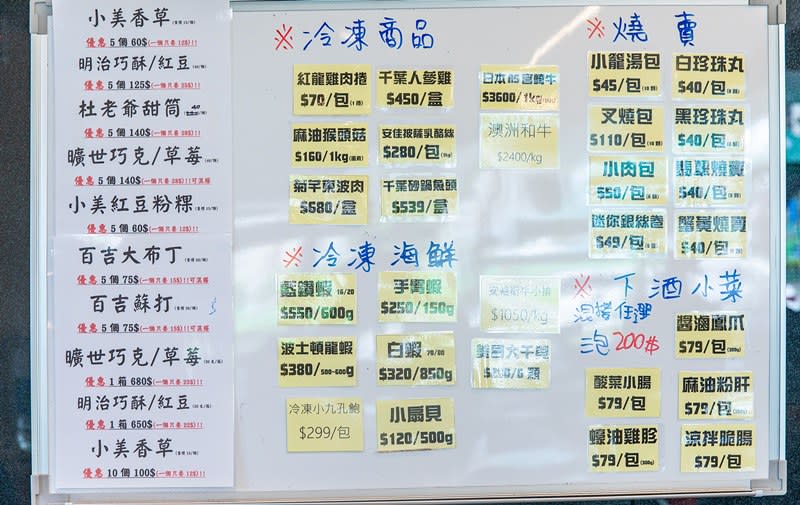 小美香草
優惠 5 個 60$(一個只要 12$)!!
明治巧酥/紅豆
優惠 5 個 125$(一個只要 25$)!!
杜老爺甜筒
優惠 5 個 140$(一個只要 28$)!!
曠世巧克/草莓
優惠 5 個 140$(一個只要 28$)!!可混種
小美紅豆粉粿
優惠 5 個 60$(一個只要 12$)!!
百吉大布丁
優惠 5 個 75$(一個只要 15$)!!可混種
百吉蘇打
優惠 5 個 75$(一個只要 15$)!!可混種
曠世巧克/草莓
優惠 1 箱 680$(一個只要 23$)!!
明治巧酥/紅豆
優惠 1 箱 650$(一個只要 22$)!!
小美香草
優惠 10 個 100$(一個只要 12$)!!
※ 冷凍商品
紅龍雞肉捲
$70/包
千葉人參雞
$450/盒
日本A5
$3600/1kg
麻油猴頭菇
$160/1kg
安佳披薩乳酪絲
$280/包(1kg)
澳洲和牛
$2400/kg
菊芋東波肉
$680/盒
千葉砂鍋魚頭
$539/盒
※ 冷凍海鮮
藍鑽蝦 16/20
$550/600g
手臂蝦
$250/150g
$1050/1kg
波士頓龍蝦
$380/500-600g
白蝦
$320/850g
美國大干貝
冷凍小九孔鮑
$299/包
小扇貝
$120/500g
※ 燒賣
小籠湯包
$45/包
白珍珠丸
$40/包
叉燒包
$110/包
黑珍珠丸
$40/包
小肉包
$50/包
翡翠燒賣
$40/包
迷你銀絲卷
$49/包
蟹黃燒賣
$40/包
※ 下酒小菜
混搭任選
3包 200$
醬滷鳳爪
$79/包
酸菜小腸
$79/包
麻油粉肝
$79/包
蠔油雞胗
$79/包
涼拌脆腸
$79/包